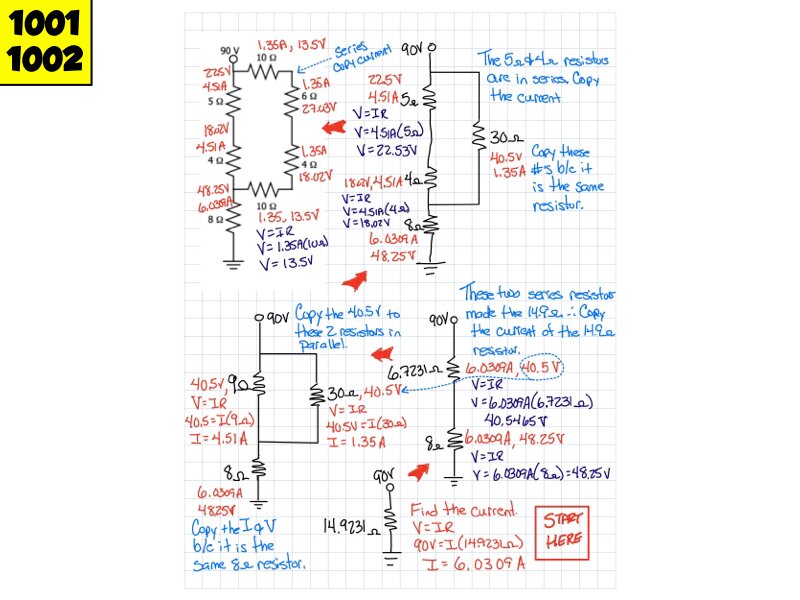 1001
1002
90 V
1.35A, 13.5V
10 Ω
series
copy current
22.5V
4.51A
5 Ω
1.35A
6 Ω
27.03V
18.02V
4.51A
4 Ω
1.35A
4 Ω
18.02V
48.25V
6.0309A
8 Ω
10 Ω
1.35, 13.5V
V=IR
V= 1.35A(10Ω)
V= 13.5V
90V
22.5V
4.51A 5Ω
V=IR
V=4.51A(5Ω)
V=22.53V
18.02V, 4.51A 4Ω
V=IR
V=4.51A(4Ω)
V=18.02V
8Ω
6.0309A
48.25V
30Ω
40.5V
1.35A
The 5Ω & 4Ω resistors
are in series. Copy
the current
Copy these
#s b/c it
is the same
resistor.
90V
Copy the 40.5V to
these 2 resistors in
parallel.
40.5V, 9Ω
V=IR
40.5=I(9Ω)
I=4.51A
30Ω, 40.5V
V=IR
40.5V=I(30Ω)
I=1.35A
8Ω
6.0309A
48.25V
Copy the I & V
b/c it is the
same 8Ω resistor.
These two series resistor
made the 14.9Ω ∴ Copy
the current of the 14.9Ω
resistor.
90V
6.7231Ω
6.0309A, 40.5V
V=IR
V=6.0309A(6.7231Ω)
40.5465V
8Ω
6.0309A, 48.25V
V=IR
V=6.0309A(8Ω)=48.25V
90V
14.9231Ω
Find the current.
V=IR
90V=I(14.9231Ω)
I=6.0309A
START
HERE